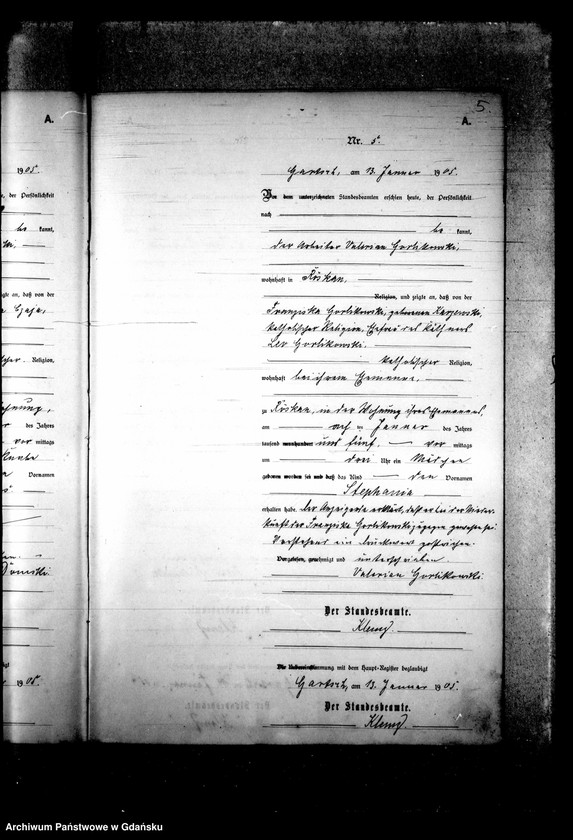 A.
1905.
, der Persönlichkeit
be kannt,
zeigte an, daß von der
Religion,
des Jahres
vor mittags
Vornamen
1905.
5.
A.
Nr. 5.
Gartsch, am 13. Januar 1905.
Vor dem unterzeichneten Standesbeamten erschien heute, der Persönlichkeit
nach
be kannt,
der Arbeiter Valerian Gorlikowski,
wohnhaft in Röskau,
Religion, und zeigte an, daß von der
Franziska Gorlikowski, geborenen
katholischer Religion, Ehefrau des
Gorlikowski.
katholischer Religion,
wohnhaft bei ihrem Ehemanne,
zu Röskau, in der Wohnung ihres Ehemannes,
am acht ten Januar des Jahres
tausend neunhundert und fünf. vor mittags
um drei Uhr ein Mädchen
geboren worden sei und daß das Kind den Vornamen
Stephania
erhalten habe. Der Anzeigende erklärt, daß er bei der Nieder-
kunft der Franziska Gorlikowski zugegen gewesen sei.
Vorstehend ein Druckwort gestrichen.
Vorgelesen, genehmigt und unterschrieben
Valerian Gorlikowski.
Der Standesbeamte.
Die Uebereinstimmung mit dem Haupt-Register beglaubigt
Gartsch, am 13. Januar 1905.
Der Standesbeamte.
Archiwum Państwowe w Gdańsku